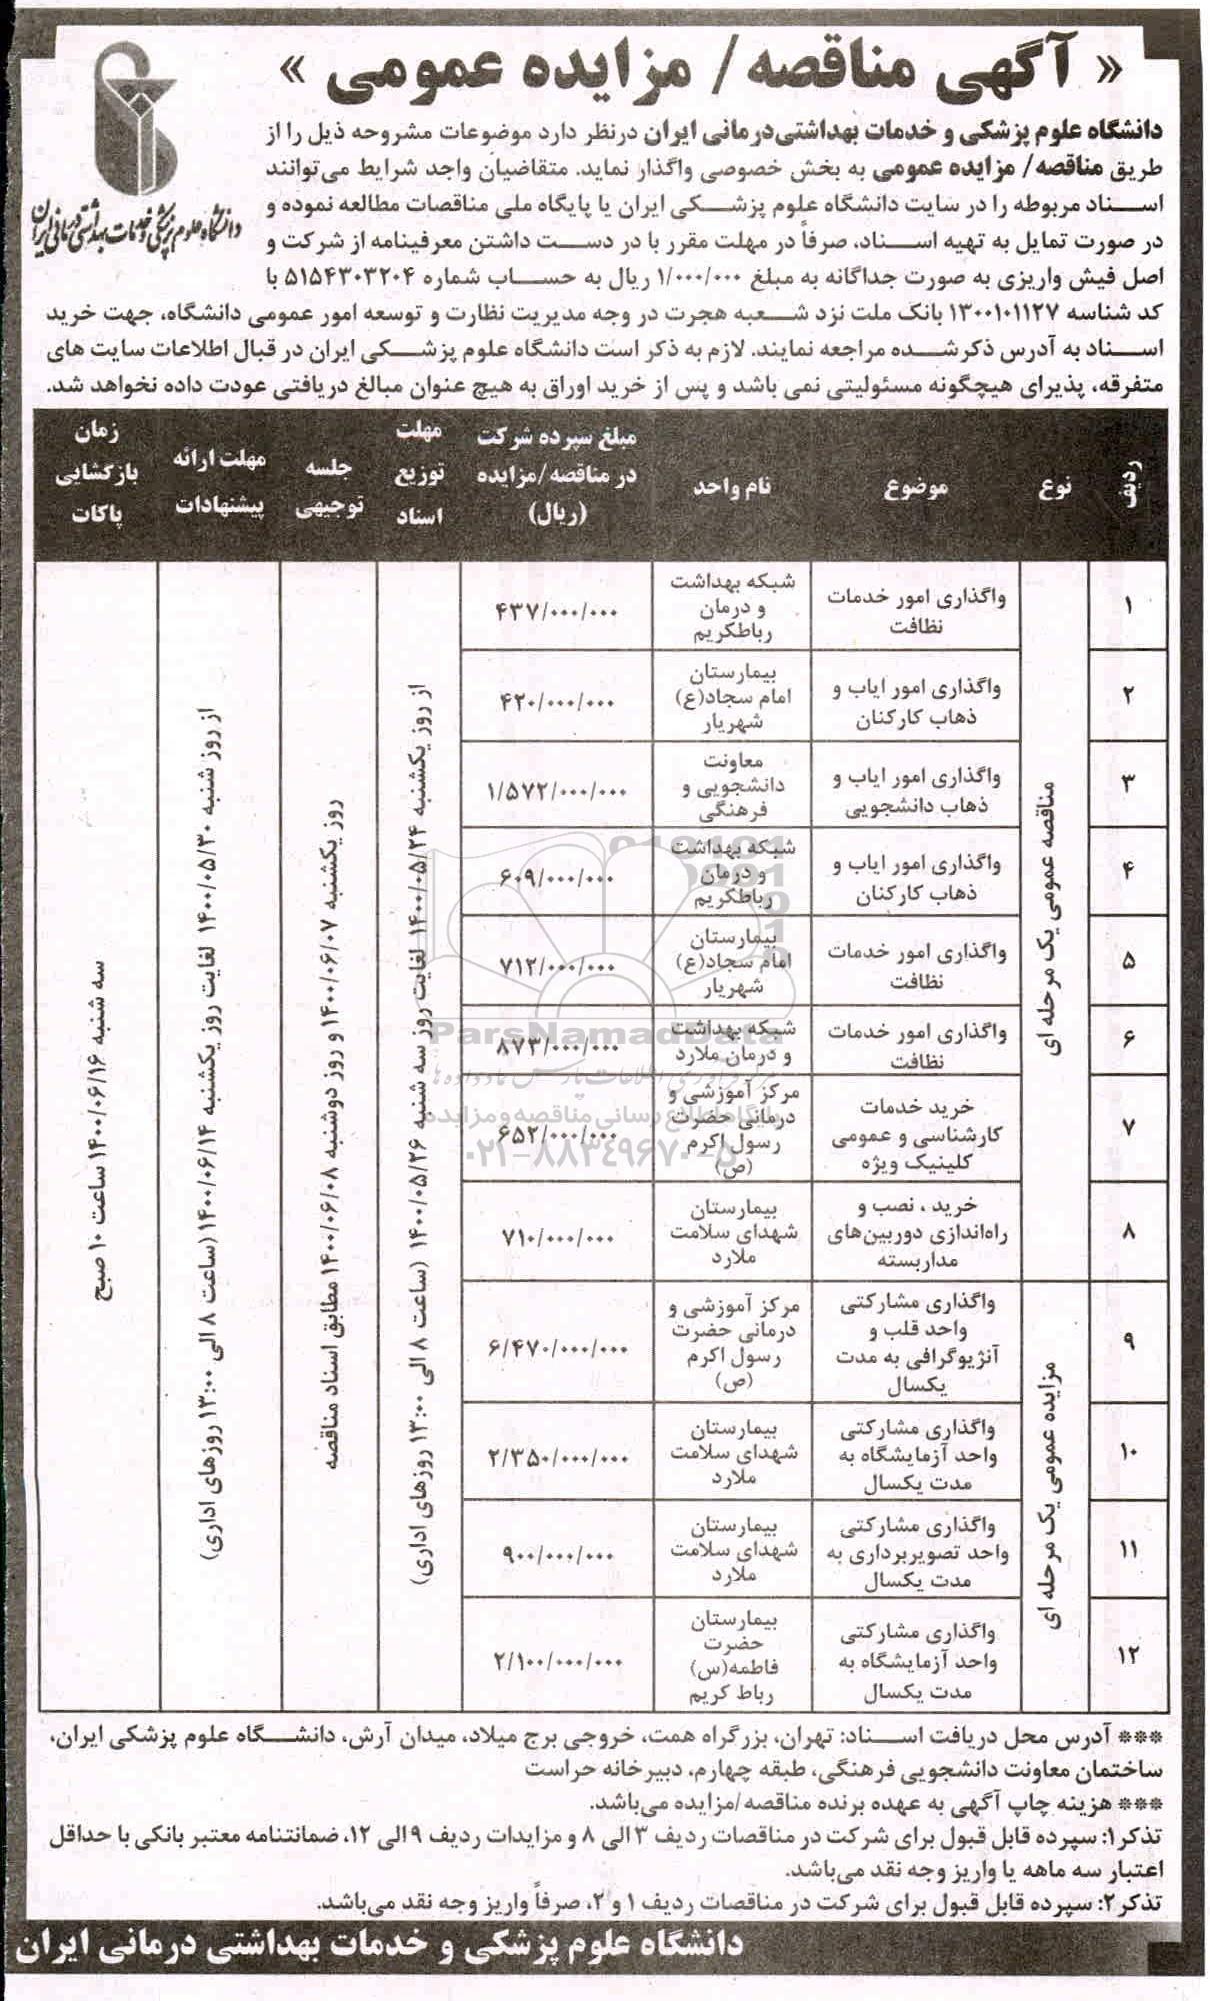 « آگهی مناقصه / مزایده عمومی »
دانشگاه علوم پزشکی و خدمات بهداشتی درمانی ایران
دانشگاه علوم پزشکی و خدمات بهداشتی‌درمانی ایران درنظر دارد موضوعات مشروحه ذیل را از
طریق مناقصه/ مزایده عمومی به بخش خصوصی واگذار نماید. متقاضیان واجد شرایط می‌توانند
اسناد مربوطه را در سایت دانشگاه علوم پزشکی ایران یا پایگاه ملی مناقصات مطالعه نموده و
در صورت تمایل به تهیه اسناد، صرفاً در مهلت مقرر با در دست داشتن معرفینامه از شرکت و
اصل فیش واریزی به صورت جداگانه به مبلغ ۱/۰۰۰/۰۰۰ ریال به حساب شماره ۵۱۵۴۳۰۳۲۰۴ با
کد شناسه ۱۳۰۰۱۰۱۱۲۷ بانک ملت نزد شعبه هجرت در وجه مدیریت نظارت و توسعه امور عمومی دانشگاه، جهت خرید
اسناد به آدرس ذکرشده مراجعه نمایند. لازم به ذکر است دانشگاه علوم پزشکی ایران در قبال اطلاعات سایت های
متفرقه، پذیرای هیچگونه مسئولیتی نمی باشد و پس از خرید اوراق به هیچ عنوان مبالغ دریافتی عودت داده نخواهد شد.
ردیف
نوع
موضوع
نام واحد
مبلغ سپرده شرکت
در مناقصه/مزایده
(ریال)
مهلت
توزیع
اسناد
جلسه
توجیهی
مهلت ارائه
پیشنهادات
زمان
بازکشایی
پاکات
مناقصه عمومی یک مرحله ای
۱
واگذاری امور خدمات
نظافت
شبکه بهداشت
و درمان
رباطکریم
۴۳۷/۰۰۰/۰۰۰
۲
واگذاری امور ایاب و
ذهاب کارکنان
بیمارستان
امام سجاد(ع)
شهریار
۴۲۰/۰۰۰/۰۰۰
۳
واگذاری امور ایاب و
ذهاب دانشجویی
معاونت
دانشجویی و
فرهنگی
۱/۵۷۲/۰۰۰/۰۰۰
۴
واگذاری امور ایاب و
ذهاب کارکنان
شبکه بهداشت
و درمان
رباطکریم
۶۰۹/۰۰۰/۰۰۰
۵
واگذاری امور خدمات
نظافت
بیمارستان
امام سجاد(ع)
شهریار
۷۱۲/۰۰۰/۰۰۰
۶
واگذاری امور خدمات
نظافت
شبکه بهداشت
و درمان ملارد
۸۷۳/۰۰۰/۰۰۰
۷
خرید خدمات
کارشناسی و عمومی
کلینیک ویژه
مرکز آموزشی و
درمانی حضرت
رسول اکرم
(ص)
۶۵۲/۰۰۰/۰۰۰
۸
خرید ، نصب و
راه‌اندازی دوربین‌های
مداربسته
بیمارستان
شهدای سلامت
ملارد
۷۱۰/۰۰۰/۰۰۰
مزایده عمومی یک مرحله ای
۹
واگذاری مشارکتی
واحد قلب و
آنژیوگرافی به مدت
یکسال
مرکز آموزشی و
درمانی حضرت
رسول اکرم
(ص)
۶/۴۷۰/۰۰۰/۰۰۰
۱۰
واگذاری مشارکتی
واحد آزمایشگاه به
مدت یکسال
بیمارستان
شهدای سلامت
ملارد
۲/۳۵۰/۰۰۰/۰۰۰
۱۱
واگذاری مشارکتی
واحد تصویربرداری به
مدت یکسال
بیمارستان
شهدای سلامت
ملارد
۹۰۰/۰۰۰/۰۰۰
۱۲
واگذاری مشارکتی
واحد آزمایشگاه به
مدت یکسال
بیمارستان
حضرت
فاطمه(س)
رباط کریم
۲/۱۰۰/۰۰۰/۰۰۰
از روز یکشنبه ۱۴۰۰/۰۵/۲۴ لغایت روز سه شنبه ۱۴۰۰/۰۵/۲۶ (ساعت ۸ الی ۱۳:۰۰ روزهای اداری)
روز یکشنبه ۱۴۰۰/۰۶/۰۷ و روز دوشنبه ۱۴۰۰/۰۶/۰۸ مطابق اسناد مناقصه
از روز شنبه ۱۴۰۰/۰۵/۳۰ لغایت روز یکشنبه ۱۴۰۰/۰۶/۱۴ (ساعت ۸ الی ۱۳:۰۰ روزهای اداری)
سه شنبه ۱۴۰۰/۰۶/۱۶ ساعت ۱۰ صبح
ParsNamadData
مرکز فرآوری اطلاعات پارس نماد داده ها
پایگاه اطلاع رسانی مناقصه و مزایده
۰۲۱-۸۸۳۴۹۶۷۰-۵
*** آدرس محل دریافت اسناد: تهران، بزرگراه همت، خروجی برج میلاد، میدان آرش، دانشگاه علوم پزشکی ایران،
ساختمان معاونت دانشجویی فرهنگی، طبقه چهارم، دبیرخانه حراست
*** هزینه چاپ آگهی به عهده برنده مناقصه/مزایده می‌باشد.
تذکر۱: سپرده قابل قبول برای شرکت در مناقصات ردیف ۳ الی ۸ و مزایدات ردیف ۹ الی ۱۲، ضمانتنامه معتبر بانکی با حداقل
اعتبار سه ماهه یا واریز وجه نقد می‌باشد.
تذکر۲: سپرده قابل قبول برای شرکت در مناقصات ردیف ۱ و ۲، صرفاً واریز وجه نقد می‌باشد.
دانشگاه علوم پزشکی و خدمات بهداشتی درمانی ایران